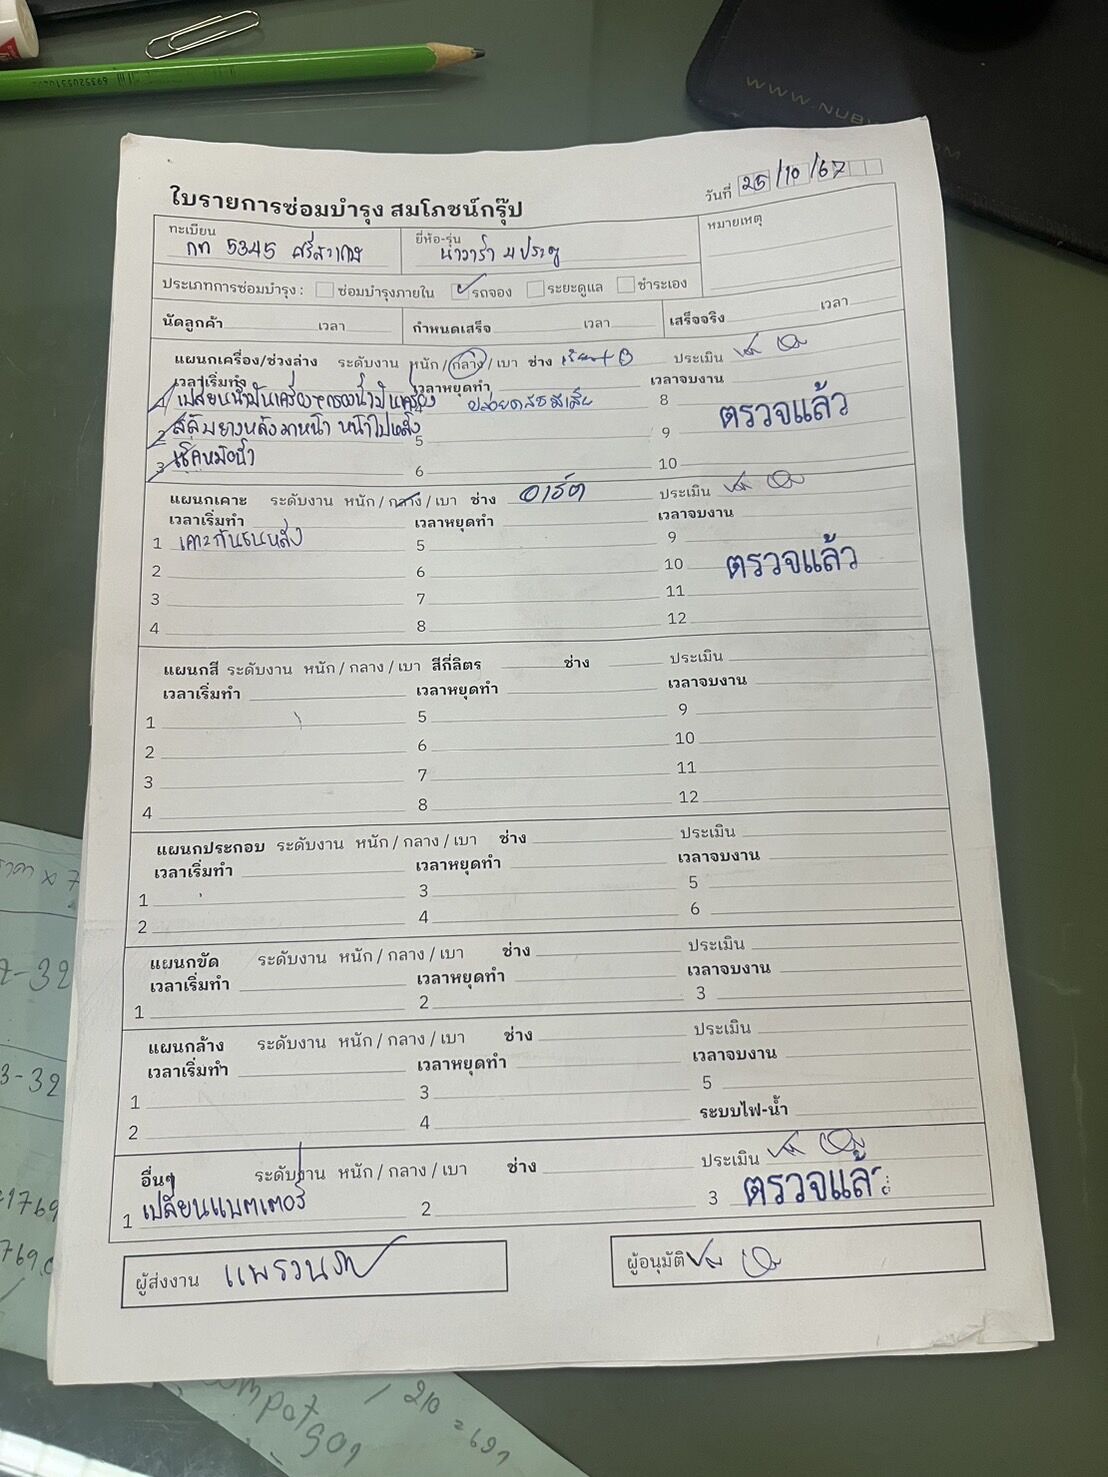 WWW.NUB
ใบรายการซ่อมบำรุง สมโภชน์กรุ๊ป
วันที่ 25/10/67
ทะเบียน กท 5345 ศรีสะเกษ
ยี่ห้อ-รุ่น นาวาร่า 4 ประตู
หมายเหตุ
ประเภทการซ่อมบำรุง : ซ่อมบำรุงภายใน รถจอง ระยะดูแล ชำระเอง
นัดลูกค้า เวลา กำหนดเสร็จ เวลา เสร็จจริง เวลา
แผนกเครื่อง/ช่วงล่าง ระดับงาน หนัก / กลาง / เบา ช่าง ประเมิน
เวลาเริ่มทำ เวลาหยุดทำ เวลาจบงาน
1 เปลี่ยนน้ำมันเครื่อง+กรองน้ำมันเครื่อง 4 8
ตรวจแล้ว
2 สลับยางหลังมาหน้า หน้าไปหลัง 5 9
3 เช็คหม้อน้ำ 6 10
แผนกเคาะ ระดับงาน หนัก / กลาง / เบา ช่าง อาร์ต ประเมิน
เวลาเริ่มทำ เวลาหยุดทำ เวลาจบงาน
1 เคาะกันชนหลัง 5 9
2 6 10 ตรวจแล้ว
3 7 11
4 8 12
แผนกสี ระดับงาน หนัก / กลาง / เบา สีกี่ลิตร ช่าง ประเมิน
เวลาเริ่มทำ เวลาหยุดทำ เวลาจบงาน
1 5 9
2 6 10
3 7 11
4 8 12
แผนกประกอบ ระดับงาน หนัก / กลาง / เบา ช่าง ประเมิน
เวลาเริ่มทำ เวลาหยุดทำ เวลาจบงาน
1 3 5
2 4 6
แผนกขัด ระดับงาน หนัก / กลาง / เบา ช่าง ประเมิน
เวลาเริ่มทำ เวลาหยุดทำ เวลาจบงาน
1 2 3
แผนกล้าง ระดับงาน หนัก / กลาง / เบา ช่าง ประเมิน
เวลาเริ่มทำ เวลาหยุดทำ เวลาจบงาน
1 3 5
2 4 ระบบไฟ-น้ำ
อื่นๆ ระดับงาน หนัก / กลาง / เบา ช่าง ประเมิน
1 เปลี่ยนแบตเตอรี่ 2 3 ตรวจแล้
ผู้ส่งงาน แพรวนภา
ผู้อนุมัติ